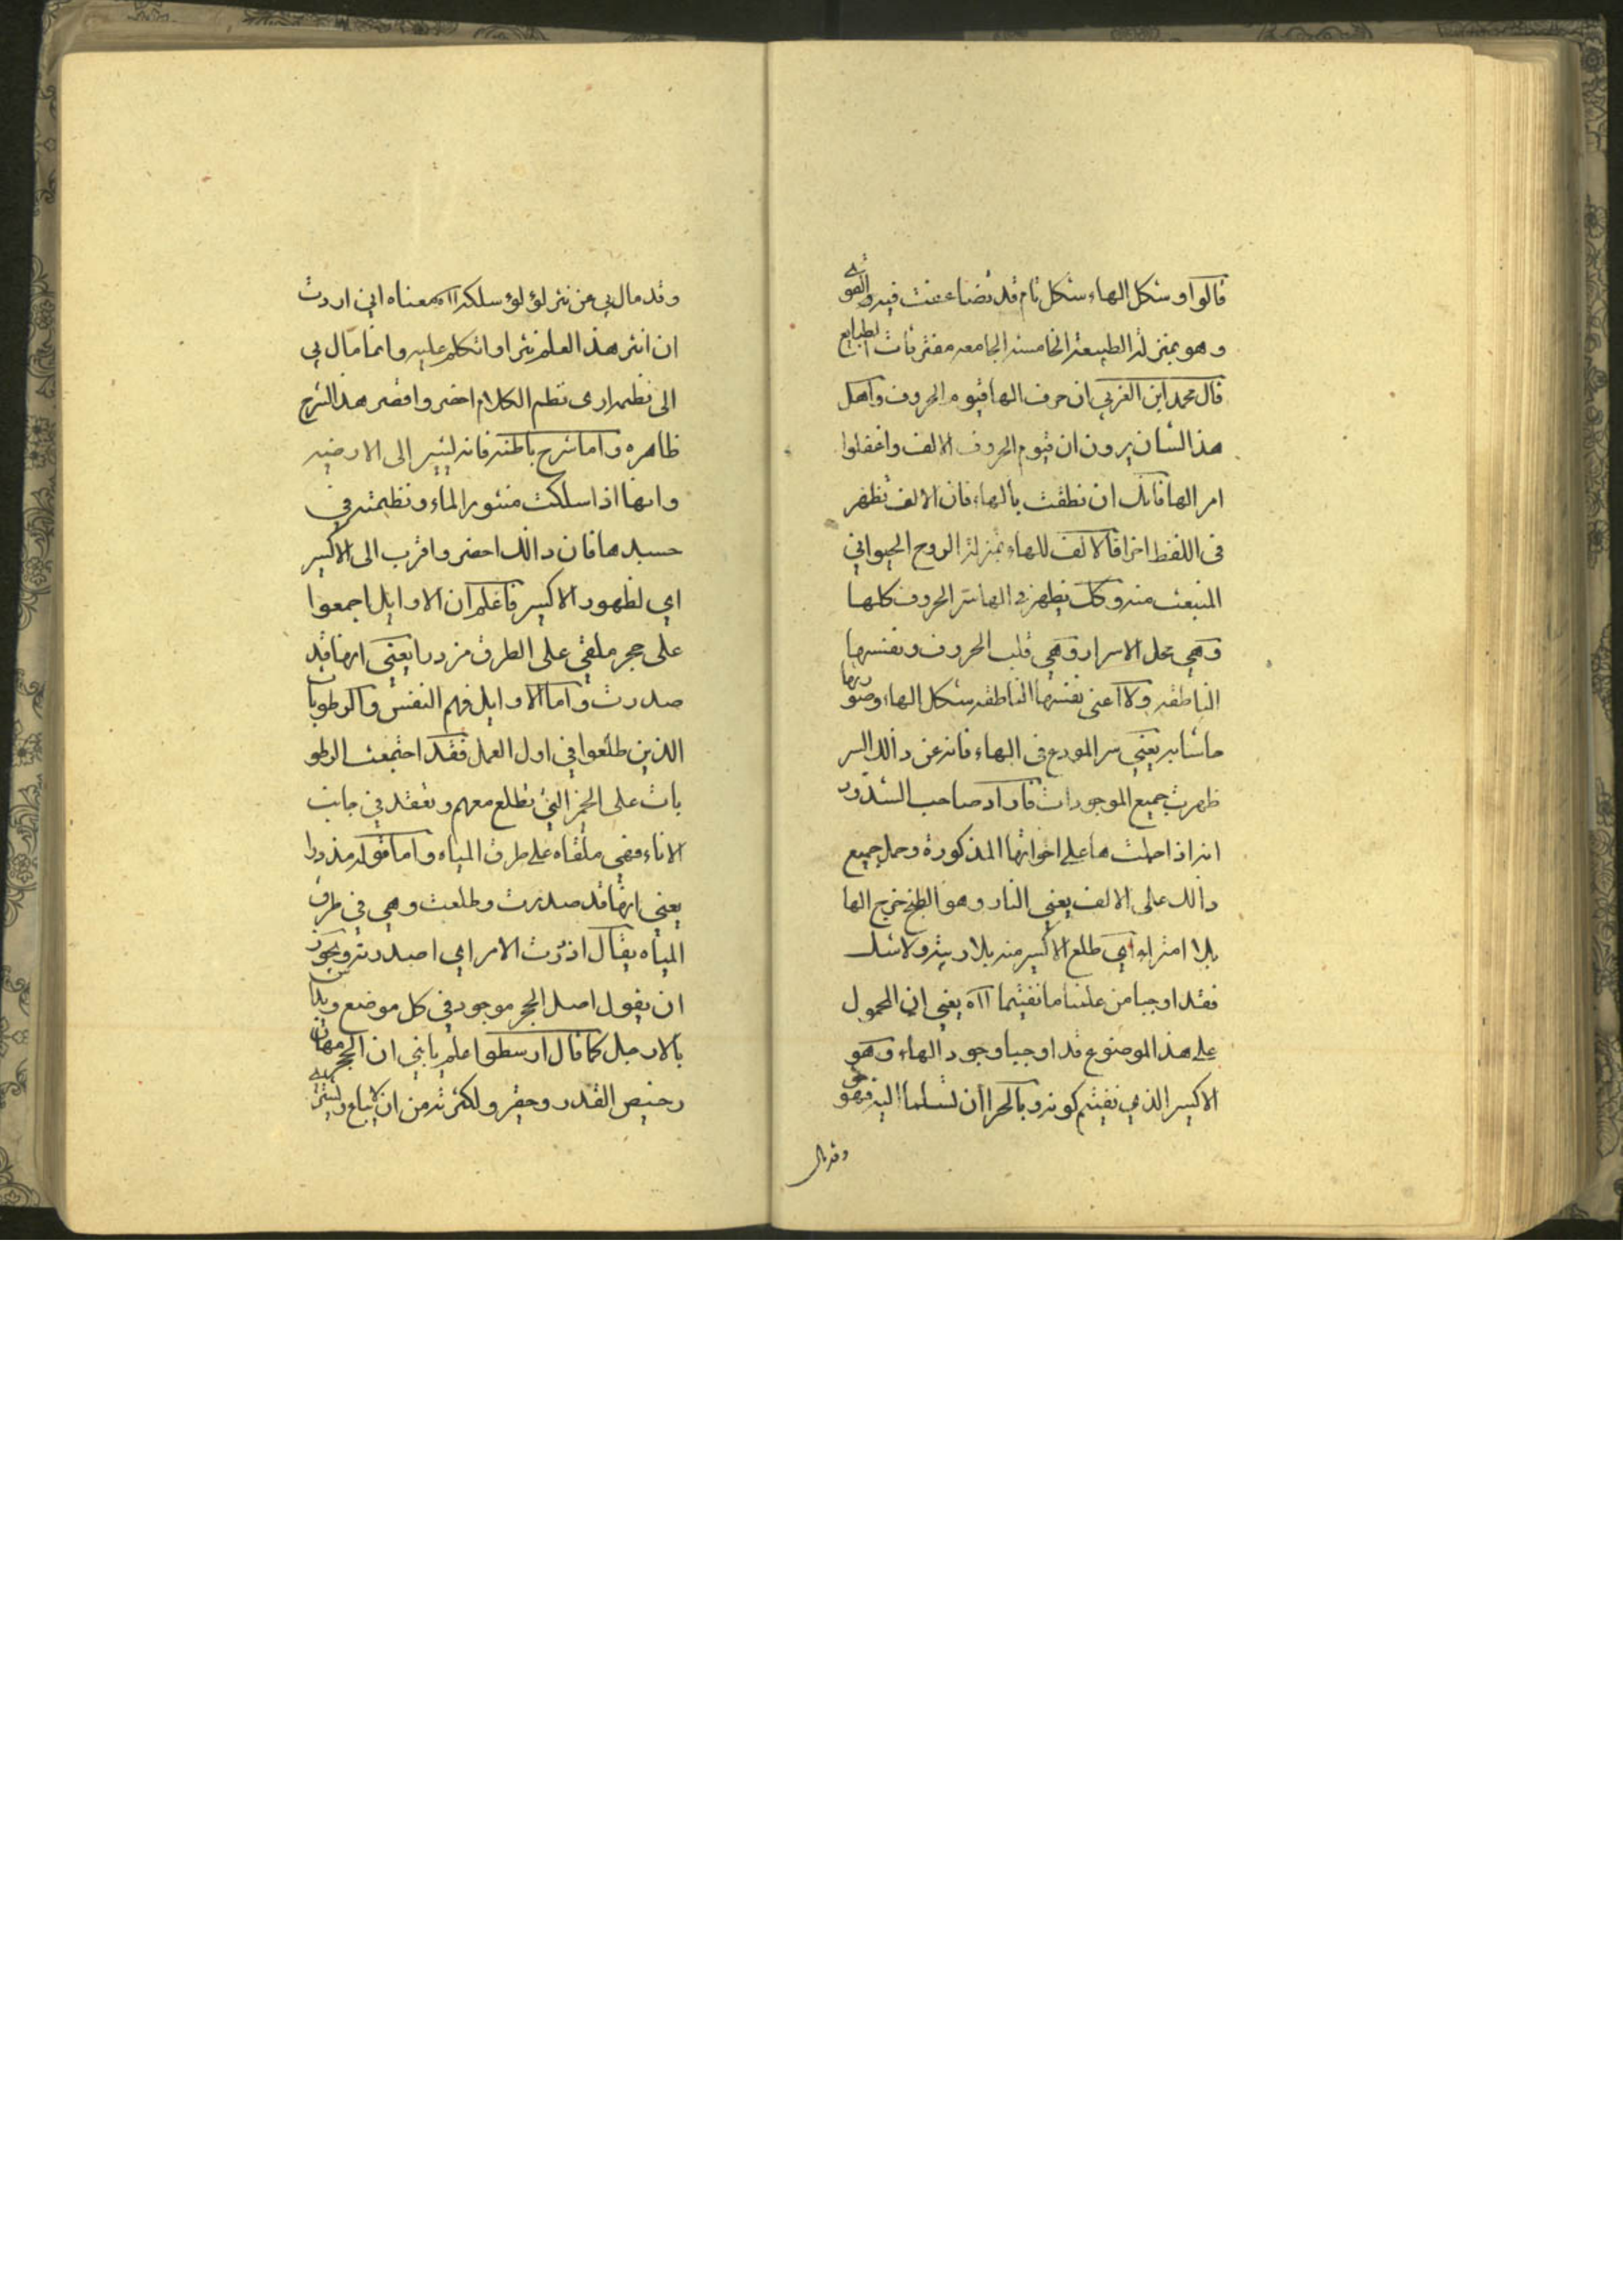 قالوا وشكل الهاء شكل تام قد تضاعفت فيه والقوى
وهو بمنزلة الطبيعة الخامسة الجامعه مفترقات الطبايع
قال محمد ابن العربي ان حرف الها قيوم الحروف واهل
هذا الشان يرون ان قيوم الحروف الالف واغفلوا
امر الها فانك ان نطقت بالهاء فان الالف تظهر
فى اللفظ اخرا فالالف للهاء بمنزلة الروح الحيواني
المنبعث منه وكك يظهر في الها سر الحروف كلها
وهي محل الاسرار وهي قلب الحروف ونفسها
الناطقه ولا اعنى نفسها الناطقه شكل الهاء وصورتها
حاشا بريعنى سر المودع فى الهاء فانه عن دالك السر
ظهرت جميع الموجودات فاراد صاحب الشذور
انه اذا حملت ها على اخواتها المذكورة وحمل جميع
دالك على الالف يعني النار وهو الطبخ خرج الها
بلا امتراء اي طلع الاكسير منه بلا ريبه ولا شك
فقد اوجبا من علنا ما نفيتما ااه يعني ان المحمول
على هذا الموضوع قد اوجبا وجود الهاء وهو
الاكسير الذي نفيتم كونه وبالحرا أن تسلما اليه فهو حق
وقد مال
وقد مال بي عن نثر لؤلؤ سلكه ااه معناه اني اردت
ان انثر هذا العلم نثرا واتكلم عليه وانما مال بي
الى نظمه ارى نظم الكلام اخصر واقصر هذا الشرح
ظاهره واما شرح باطنه فانه ليشير الى الارضيه
وانها اذا سلكت منثور الماء ونظمته في
جسدها فان دالك احضر واقرب الى الاكسير
اي لظهور الاكسير فاعلم ان الاوايل اجمعوا
على حجر ملقى على الطرق مزدرا يعنى انها قد
صدرت واما الاوايل فهم النفس والرطوبات
الذين طلعوا في اول العمل فقد اجتمعت الرطو
بات على الحجر التي تطلع معهم وتعقد في جانب
الاناء فهى ملقاه على طرق المياه واما قوله مزدرا
يعني انها قد صدرت وطلعت وهي في طرق
المياه يقال ازدرت الامر اي اصدرته ويجوز
ان يقول اصل الحجر موجود في كل موضع ويداس
بالارجل كما قال ارسطوا علم يا بني ان الحجر مهان
رخيص القدر وحقير ولكثرته من ان لا يباع ولا يشترى